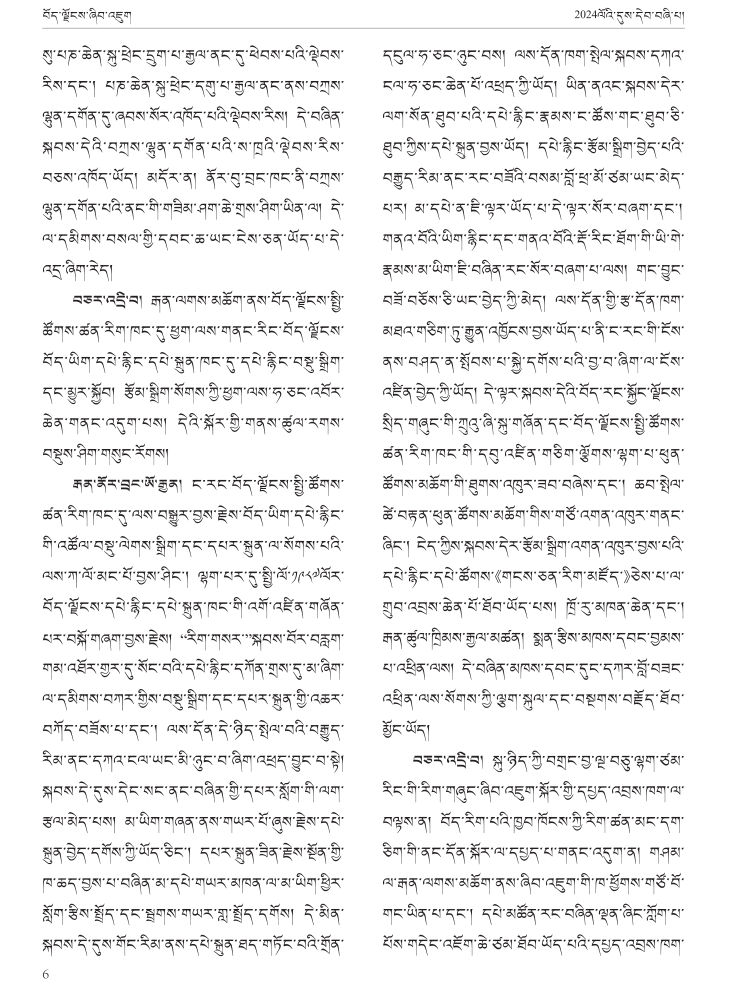 བོད་ལྗོངས་ཞིབ་འཇུག
2024ལོའི་དུས་དེབ་བཞི་པ།
སུ་པཎ་ཆེན་སྐུ་ཕྲེང་དྲུག་པ་རྒྱལ་ནང་དུ་ཕེབས་པའི་ལྡེབས་
རིས་དང་། པཎ་ཆེན་སྐུ་ཕྲེང་དགུ་པ་རྒྱལ་ནང་ནས་བཀྲས་
ལྷུན་དགོན་དུ་ཞབས་སོར་འཁོད་པའི་ལྡེབས་རིས། དེ་བཞིན་
སྐབས་དེའི་བཀྲས་ལྷུན་དགོན་པའི་ས་ཁྲའི་ལྡེབས་རིས་
བཅས་འཁོད་ཡོད། མདོར་ན། ནོར་བུ་བྲང་ཁང་ནི་བཀྲས་
ལྷུན་དགོན་པའི་ནང་གི་གཟིམ་ཤག་ཆེ་གྲས་ཤིག་ཡིན་ལ། དེ་
ལ་དམིགས་བསལ་གྱི་དབང་ཆ་ཡང་ངེས་ཅན་ཡོད་པ་དེ་
འདྲ་ཞིག་རེད།
བཅར་འདྲི་བ། རྒན་ལགས་མཆོག་ནས་བོད་ལྗོངས་སྤྱི་
ཚོགས་ཚན་རིག་ཁང་དུ་ཕྱག་ལས་གནང་རིང་བོད་ལྗོངས་
བོད་ཡིག་དཔེ་རྙིང་དཔེ་སྐྲུན་ཁང་དུ་དཔེ་རྙིང་བསྡུ་སྒྲིག་
དང་མྱུར་སྐྱོབ། རྩོམ་སྒྲིག་སོགས་ཀྱི་ཕྱག་ལས་ཧ་ཅང་འབོར་
ཆེན་གནང་འདུག་པས། དེའི་སྐོར་གྱི་གནས་ཚུལ་རགས་
བསྡུས་ཤིག་གསུང་རོགས།
རྒན་ནོར་བྲང་ཨོ་རྒྱན། ང་རང་བོད་ལྗོངས་སྤྱི་ཚོགས་
ཚན་རིག་ཁང་དུ་ལས་བསྒྱུར་བྱས་རྗེས་བོད་ཡིག་དཔེ་རྙིང་
གི་འཚོལ་བསྡུ་ལེགས་སྒྲིག་དང་དཔར་སྐྲུན་ལ་སོགས་པའི་
ལས་ཀ་ལོ་མང་པོ་བྱས་ཤིང་། ལྷག་པར་དུ་སྤྱི་ལོ་༡༩༨༧ལོར་
བོད་ལྗོངས་དཔེ་རྙིང་དཔེ་སྐྲུན་ཁང་གི་འགོ་འཛིན་གཞོན་
པར་བསྐོ་གཞག་བྱས་རྗེས། “རིག་གསར་”སྐབས་བོར་བརླག་
གམ་འཐོར་གྱར་དུ་སོང་བའི་དཔེ་རྙིང་དཀོན་གྲས་དུ་མ་ཞིག་
ལ་དམིགས་བཀར་གྱིས་བསྡུ་སྒྲིག་དང་དཔར་སྐྲུན་གྱི་འཆར་
བཀོད་བཟོས་པ་དང་། ལས་དོན་དེ་ཉིད་སྤེལ་བའི་བརྒྱུད་
རིམ་ནང་དཀའ་ངལ་ཡང་མི་ཉུང་བ་ཞིག་འཕྲད་བྱུང་བ་སྟེ།
སྐབས་དེ་དུས་དེང་སང་ནང་བཞིན་གྱི་དཔར་སློག་གི་ལག་
རྩལ་མེད་པས། མ་ཡིག་གཞན་ནས་གཡར་པོ་ཞུས་རྗེས་དཔེ་
སྐྲུན་བྱེད་དགོས་ཀྱི་ཡོད་ཅིང་། དཔར་སྐྲུན་ཟིན་རྗེས་སྔོན་གྱི་
ཁ་ཆད་བྱས་པ་བཞིན་མ་དཔེ་གཡར་མཁན་ལ་མ་ཡིག་ཕྱིར་
སློག་རྩིས་སྤྲོད་དང་སྦྲགས་གཡར་གླ་སྤྲོད་དགོས། དེ་མིན་
སྐབས་དེ་དུས་གོང་རིམ་ནས་དཔེ་སྐྲུན་ཐད་གཏོང་བའི་གྲོན་
དངུལ་ཧ་ཅང་ཉུང་བས། ལས་དོན་ཁག་སྤེལ་སྐབས་དཀའ་
ངལ་ཧ་ཅང་ཆེན་པོ་འཕྲད་ཀྱི་ཡོད། ཡིན་ནའང་སྐབས་དེར་
ལག་སོན་ཐུབ་པའི་དཔེ་རྙིང་རྣམས་ང་ཚོས་གང་ཐུབ་ཅི་
ཐུབ་ཀྱིས་དཔེ་སྐྲུན་བྱས་ཡོད། དཔེ་རྙིང་རྩོམ་སྒྲིག་བྱེད་པའི་
བརྒྱུད་རིམ་ནང་རང་བཟོའི་བསམ་བློ་ཕྲ་མོ་ཙམ་ཡང་མེད་
པར། མ་དཔེ་ན་ཇི་ལྟར་ཡོད་པ་དེ་ལྟར་སོར་བཞག་དང་།
གནའ་བོའི་ཡིག་རྙིང་དང་གནའ་བོའི་རྡོ་རིང་ཐོག་གི་ཡི་གེ་
རྣམས་མ་ཡིག་ཇི་བཞིན་རང་སོར་བཞག་པ་ལས། གང་བྱུང་
བཟོ་བཅོས་ཅི་ཡང་བྱེད་ཀྱི་མེད། ལས་དོན་གྱི་རྩ་དོན་ཁག་
མཐའ་གཅིག་ཏུ་རྒྱུན་འཁྱོངས་བྱས་ཡོད་པ་ནི་ང་རང་གི་ངོས་
ནས་བཤད་ན་སྤོབས་པ་སྐྱེ་དགོས་པའི་བྱ་བ་ཞིག་ལ་ངོས་
འཛིན་བྱེད་ཀྱི་ཡོད། དེ་ལྟར་སྐབས་དེའི་བོད་རང་སྐྱོང་ལྗོངས་
སྲིད་གཞུང་གི་ཀྲུའུ་ཞི་སྐུ་གཞོན་དང་བོད་ལྗོངས་སྤྱི་ཚོགས་
ཚན་རིག་ཁང་གི་དབུ་འཛིན་གཅིག་ལྕོགས་ལྷག་པ་ཕུན་
ཚོགས་མཆོག་གི་ཐུགས་འཁུར་ཟབ་བཞེས་དང་། ཆབ་སྤེལ་
ཚེ་བརྟན་ཕུན་ཚོགས་མཆོག་གིས་གཙོ་འགན་འཁུར་གནང་
ཞིང་། ངེད་ཀྱིས་སྐབས་དེར་རྩོམ་སྒྲིག་འགན་འཁུར་བྱས་པའི་
དཔེ་རྙིང་དཔེ་ཚོགས་《གངས་ཅན་རིག་མཛོད་》ཅེས་པ་ལ་
གྲུབ་འབྲས་ཆེན་པོ་ཐོབ་ཡོད་པས། ཁྲོ་རུ་མཁན་ཆེན་དང་།
རྒན་ཚུལ་ཁྲིམས་རྒྱལ་མཚན། སྨན་རྩིས་མཁས་དབང་བྱམས་
པ་འཕྲིན་ལས། དེ་བཞིན་མཁས་དབང་དུང་དཀར་བློ་བཟང་
འཕྲིན་ལས་སོགས་ཀྱི་ལྕག་སྐུལ་དང་བསྔགས་བརྗོད་ཐོབ་
མྱོང་ཡོད།
བཅར་འདྲི་བ། སྐུ་ཉིད་ཀྱི་བགྲང་བྱ་ལྔ་བཅུ་ལྷག་ཙམ་
རིང་གི་རིག་གཞུང་ཞིབ་འཇུག་སྐོར་གྱི་དཔྱད་འབྲས་ཁག་ལ་
བལྟས་ན། བོད་རིག་པའི་ཁྱབ་ཁོངས་ཀྱི་རིག་ཚན་མང་དག་
ཅིག་གི་ནང་དོན་སྐོར་ལ་དཔྱད་པ་གནང་འདུག་ན། གཤམ་
ལ་རྒན་ལགས་མཆོག་ནས་ཞིབ་འཇུག་གི་ཁ་ཕྱོགས་གཙོ་བོ་
གང་ཡིན་པ་དང་། དཔེ་མཚོན་རང་བཞིན་ལྡན་ཞིང་ཀློག་པ་
པོས་གདེང་འཇོག་ཆེ་ཙམ་ཐོབ་ཡོད་པའི་དཔྱད་འབྲས་ཁག་
6